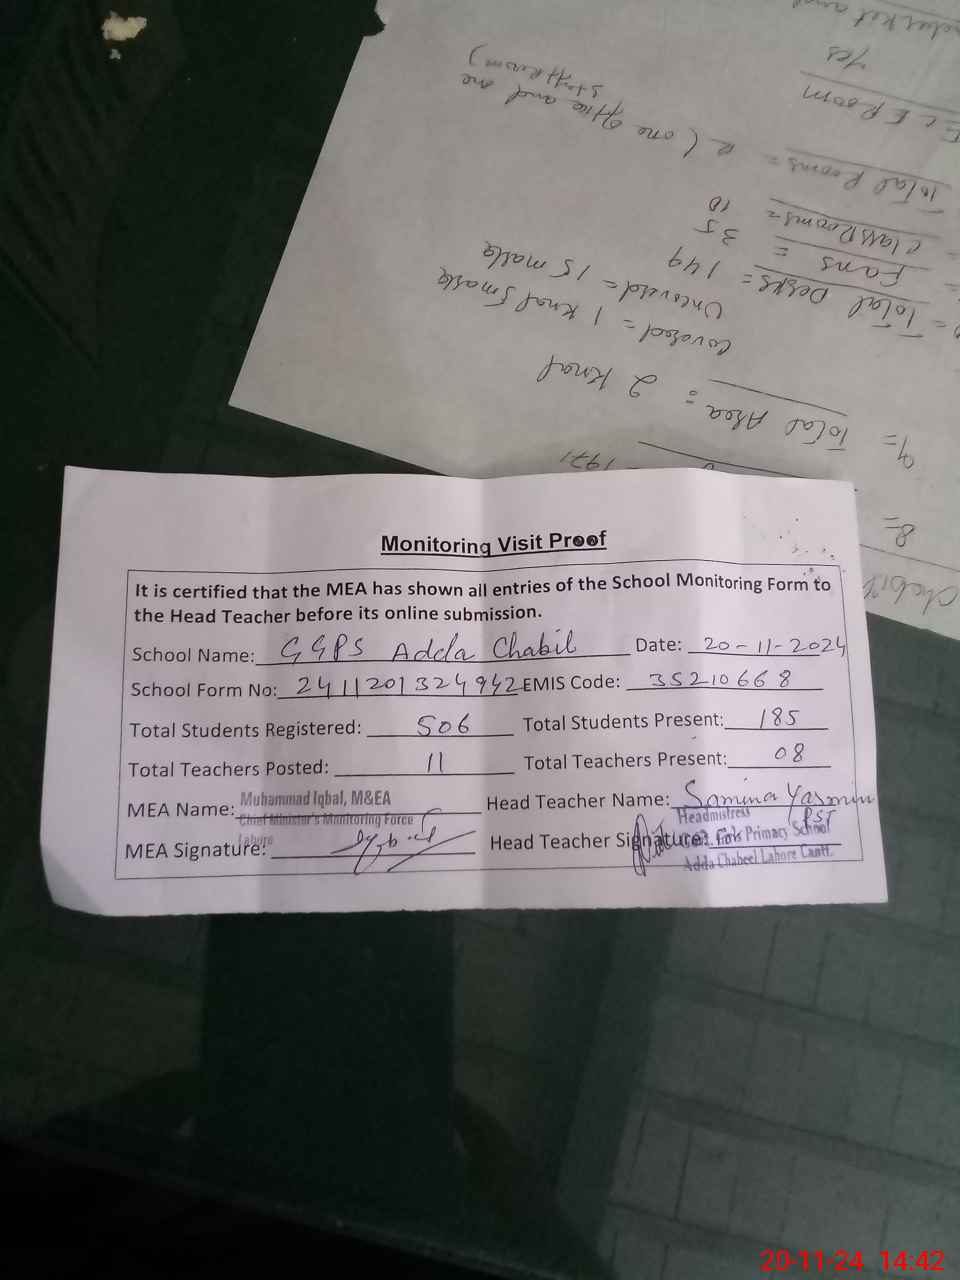 Monitoring Visit Proof
It is certified that the MEA has shown all entries of the School Monitoring Form to
the Head Teacher before its online submission.
School Name: GGPS Adda Chabil Date: 20-11-2024
School Form No: 2411201324942 EMIS Code: 35210668
Total Students Registered: 506 Total Students Present: 185
Total Teachers Posted: 11 Total Teachers Present: 08
MEA Name: Muhammad Iqbal, M&EA Head Teacher Name: Samina Yasmin
Chief Minister's Monitoring Force Headmistress PST
Lahore
MEA Signature: Head Teacher Signature: Primary School
Adda Chabeel Lahore Cantt.
8=
1971
9= Total Area = 2 Knal
Covered = 1 Knal 5 marla
Uncovered = 15 marla
Total Desks = 149
Fans = 35
Class Rooms = 10
Total Rooms = 2 (one office and one
staff Room)
ECE Room
Yes
20-11-24 14:42